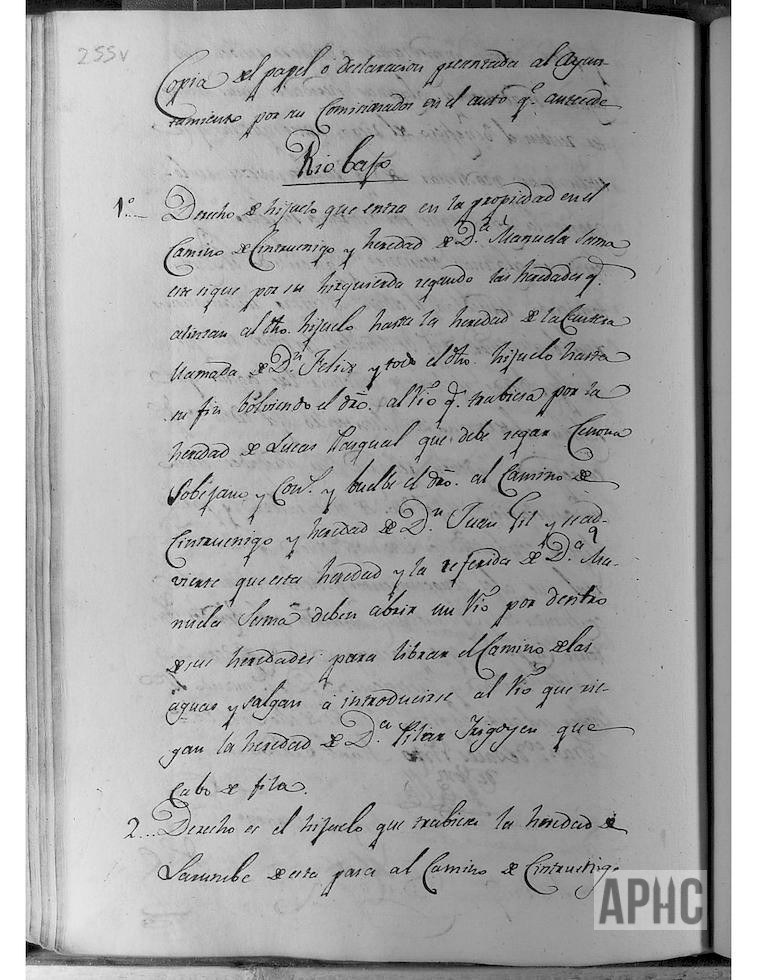 255v
Copia del papel ó declaracion presentada al Ayun-
tamiento por sus Comisionados en el auto q.e antecede
Rio bajo
1.º Derecho de hijuelo que entra en la propiedad en el
Camino de Cintruenigo y heredad de D.ª Manuela Sesma
este sigue por su hizquierda regando las heredades q.e
alinian al dho. hijuelo hasta la heredad de la
llamada de D.n Felix y todo el dho. hijuelo hasta
su fin bolviendo el dro. al Rio q.e trabiesa por la
heredad de Lucas Pasqual que debe regar Zenona
Sobejano y Con.s y buelbe el dro. al Camino de
Cintruenigo y heredad de D.n Juan Gil y se ad-
vierte que esta heredad y la referida de D.ª Ma-
nuela Sesma deben abrir un Rio por dentro
de sus heredades para librar el Camino de las
aguas y salgan á introducirse al Rio que rie-
gan la heredad de D.ª Pilar Irigoyen que
Cabo de fila.
2... Derecho es el hijuelo que trabiesa la heredad de
Larumbe de esta pasa al Camino de Cintruenigo
APHC